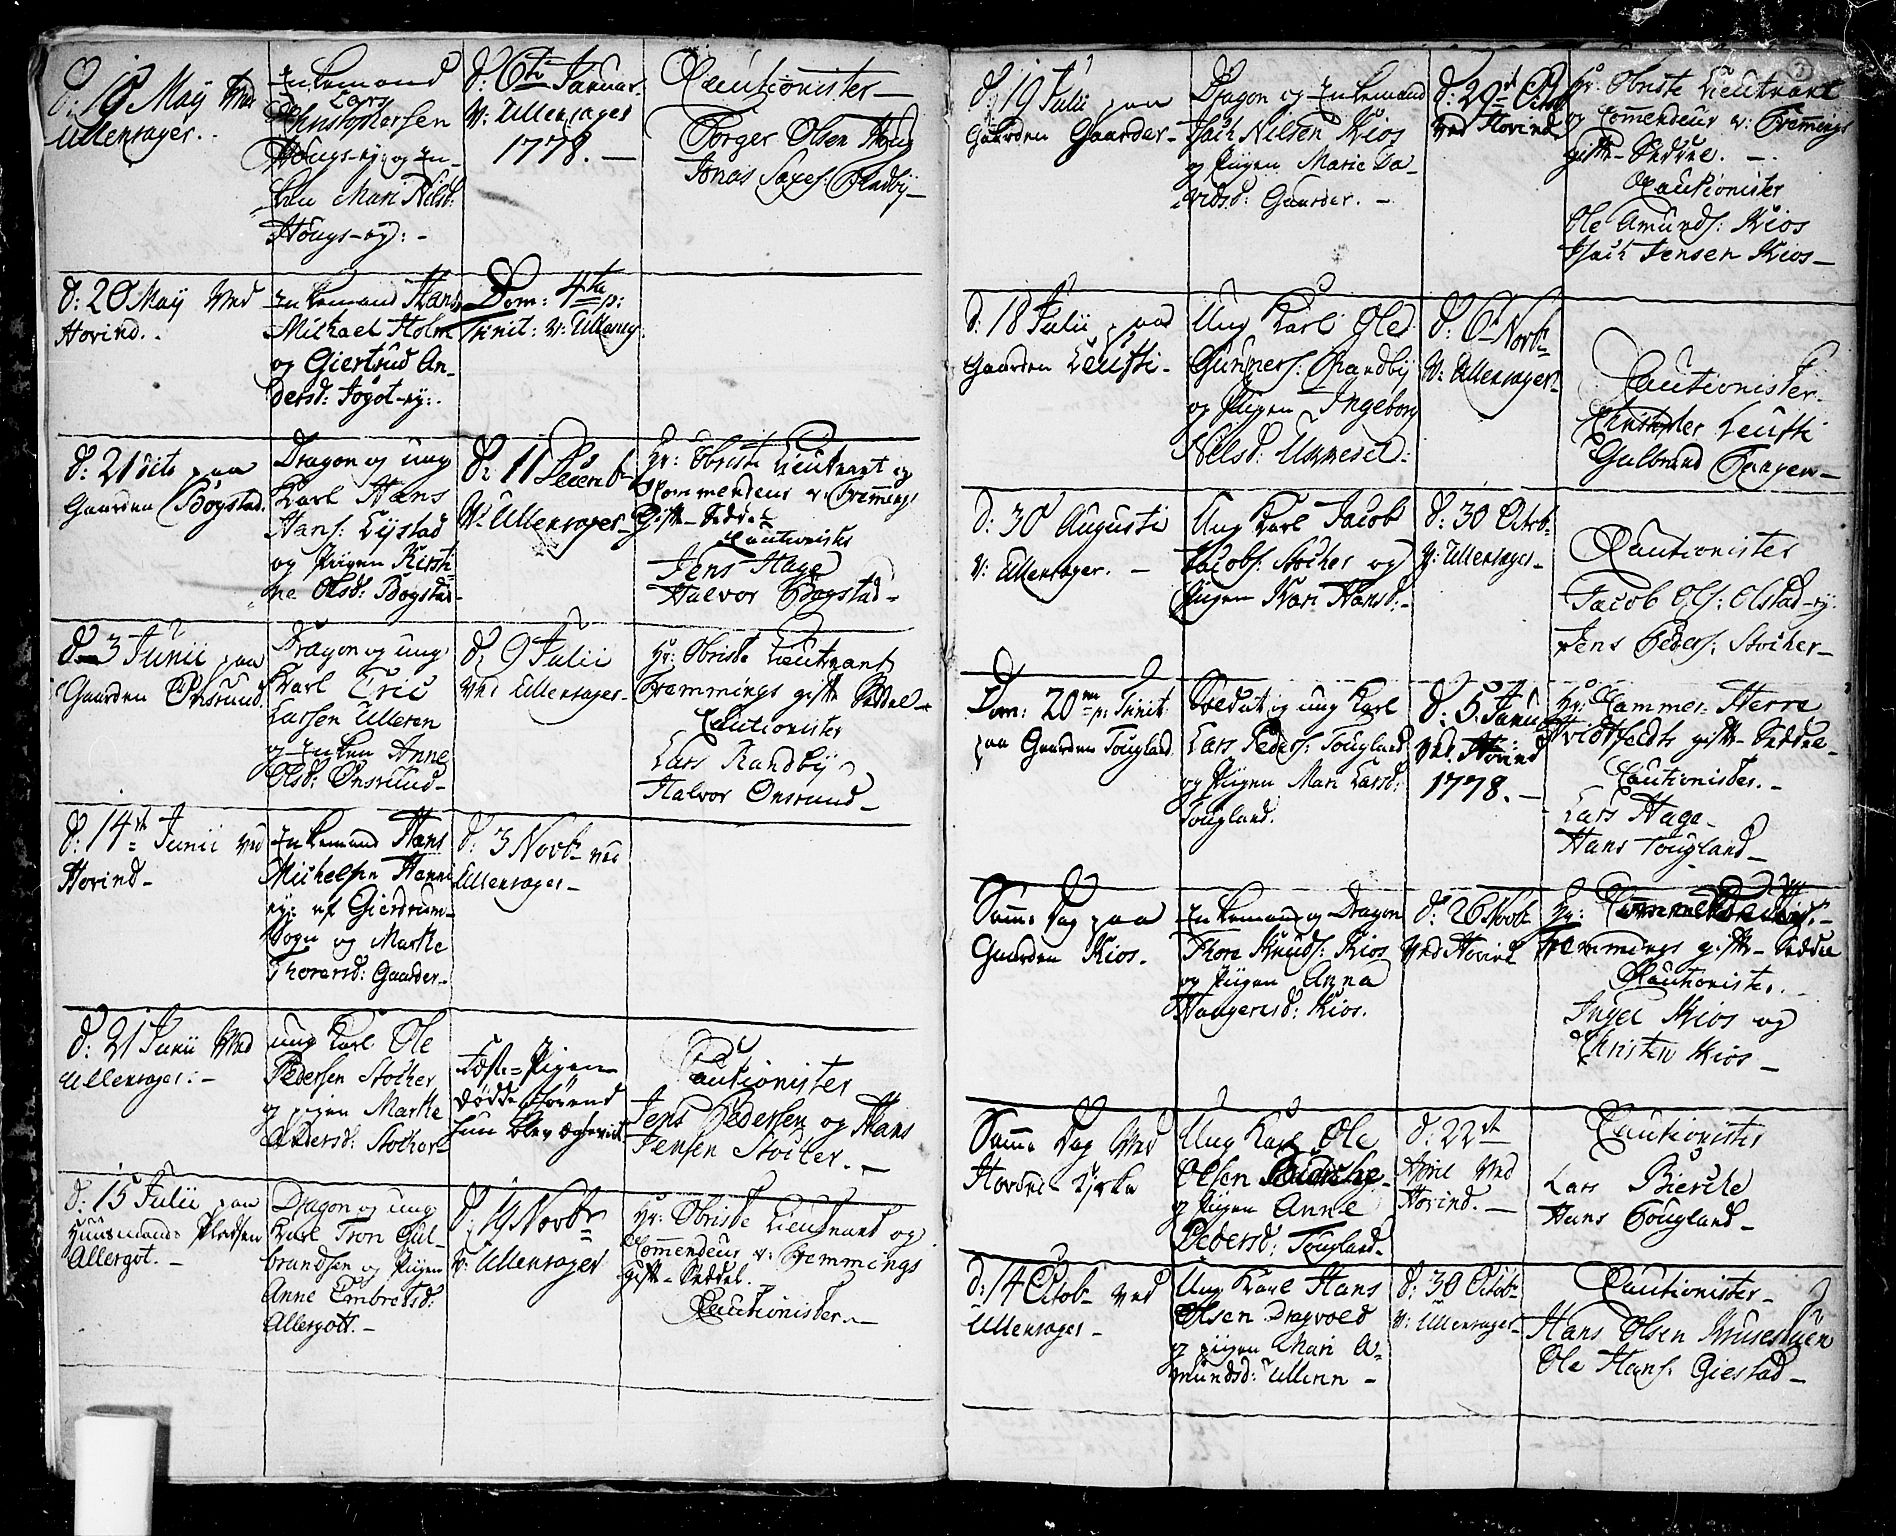 d: 18 May Ved
Ullensager.
Enkemand
Lars
Christophersen
Hougs-ey: og En-
ken Mari Nilsd:
Hougs-ey: -
d: 6te Januar.
V: Ullensager
1778. -
Cautionister -
Torger Olsen Houg
Jonas Saxes: Randby -
d: 20 May Ved
Hovind.
Enkemand Hans
Michael Holm
og Giertrud An-
dersd: Jogot-ey:.
Dom: 4ta p:
Trinit: V: Ullens:
d: 21 dito paa
Gaarden Bogstad.
Dragon og ung
Karl Hans
Hans: Lystad
og Piigen Kirsti-
ne Olsd: Bogstad -
d: 11 Decemb:
V: Ullensager -
Hr: Obriste Lieutnant og
Commendeur v: Fremmings
Gifte-Seddel
Cautionister
Jens Hage
Halvor Bogstad -
d: 3 Junii paa
Gaarden Onsrund.
Dragon og ung
Karl Eric
Larsen Ulleren
og Enken Anne
Olsd: Onsrund -
d: 9 Julii
Ved Ullensager -
Hr: Obriste Lieutnant
Fremmings gifte Seddel -
Cautionister
Lars Randby
Halvor Onsrund -
d: 14de Junii Ved
Hovind -
Enkemand Hans
Michelsen Hanne
ey: af Gierdrum-
Sogn og Marthe
Thorersd: Gaarder -
d: 3 Novbr ved
Ullensager -
d: 21 Junii Ved
Ullensager: -
ung Karl Ole
Pedersen Stocher
og pigen Marthe
Andersd: Stocher -
Fæste-Pigen
døde førend
hun blev ægteviet -
Cautionister
Jens Pedersen og Hans
Jensen Stocker. -
d: 15 Julii paa
Huusmands Pladsen
Allergot. -
Dragon og ung
Karl Tron Gul-
brandsen og Piigen
Anne Embretsd:
Allergott. -
d: 19 Novbr
V: Ullensager
Hr: Obriste Lieutnant og
Commendeur v: Fremmings
Gifte-Seddel.
Cautionister. -
d: 19 Julii paa
Gaarden Gaarder -
Dragon og Enkemand
Isach Nilsen Kios
og Piigen Marie Da-
vidsd: Gaarder. -
d: 29de Octob
Ved Hovind
Hr: Obriste Lieutnant
og Commendeur v: Fremmings
gifte-Seddel. -
Cautionister
Ole Amunds: Kios
Isach Jensen Kios -
d: 18 Julii paa
Gaarden Leufti -
Ung Karl Ole
Gunners: Randby
og Piigen Ingeborg
Nelsd:
d: 6te Novb:
V: Ullensager -
Cautionister -
Christopher Leufti
Gulbrand Tangen -
d: 30 Augusti
V: Ullensager. -
Ung Karl Jacob
Jacobs: Stocher og
Piigen Kari Hansd: -
d: 30 Octob:
V: Ullensager -
Cautionister
Jacob Ols: Olstad-ey:
Jens Peders: Stocher -
Dom: 20me p: Trinit
paa Gaarden Tougland
Soldat og ung Karl
Lars Peders: Tougland
og Piigen Mari Larsd:
Tougland.
d: 5 Janu:
Ved Hovind
1778. -
Hr: Cammer-Herre
Hvidtfeldts gifte-Seddel -
Cautionister. -
Lars Hage -
Hans Tougland -
Samme Dag paa
Gaarden Kios.
Enkemand og Dragon
Thore Knuds: Kios
og Piigen Anna
Haagensd: Kios.
d: 26 Novbr
Ved Hovind
Hr:
Fremmings gifte-Seddel
Cautionister.
Ingel Kios og
Christen Kios -
Samme Dag Ved
Hovind Kirke
Ung Karl Ole
Olsen
og Piigen Anne
Pedersd: Tougland -
d: 22de
April Ved
Hovind. -
Cautionister
Lars Biercke
Hans Tougland -
d: 14 Octob: ved
Ullensager -
Ung Karl Hans
Olsen Dragvold
og piigen Mari A-
mundsd: Ullinn -
d: 30 Octob:
V: Ullensager -
Cautionister -
Hans Olsen Krusestuen
Ole Hans: Giestad -